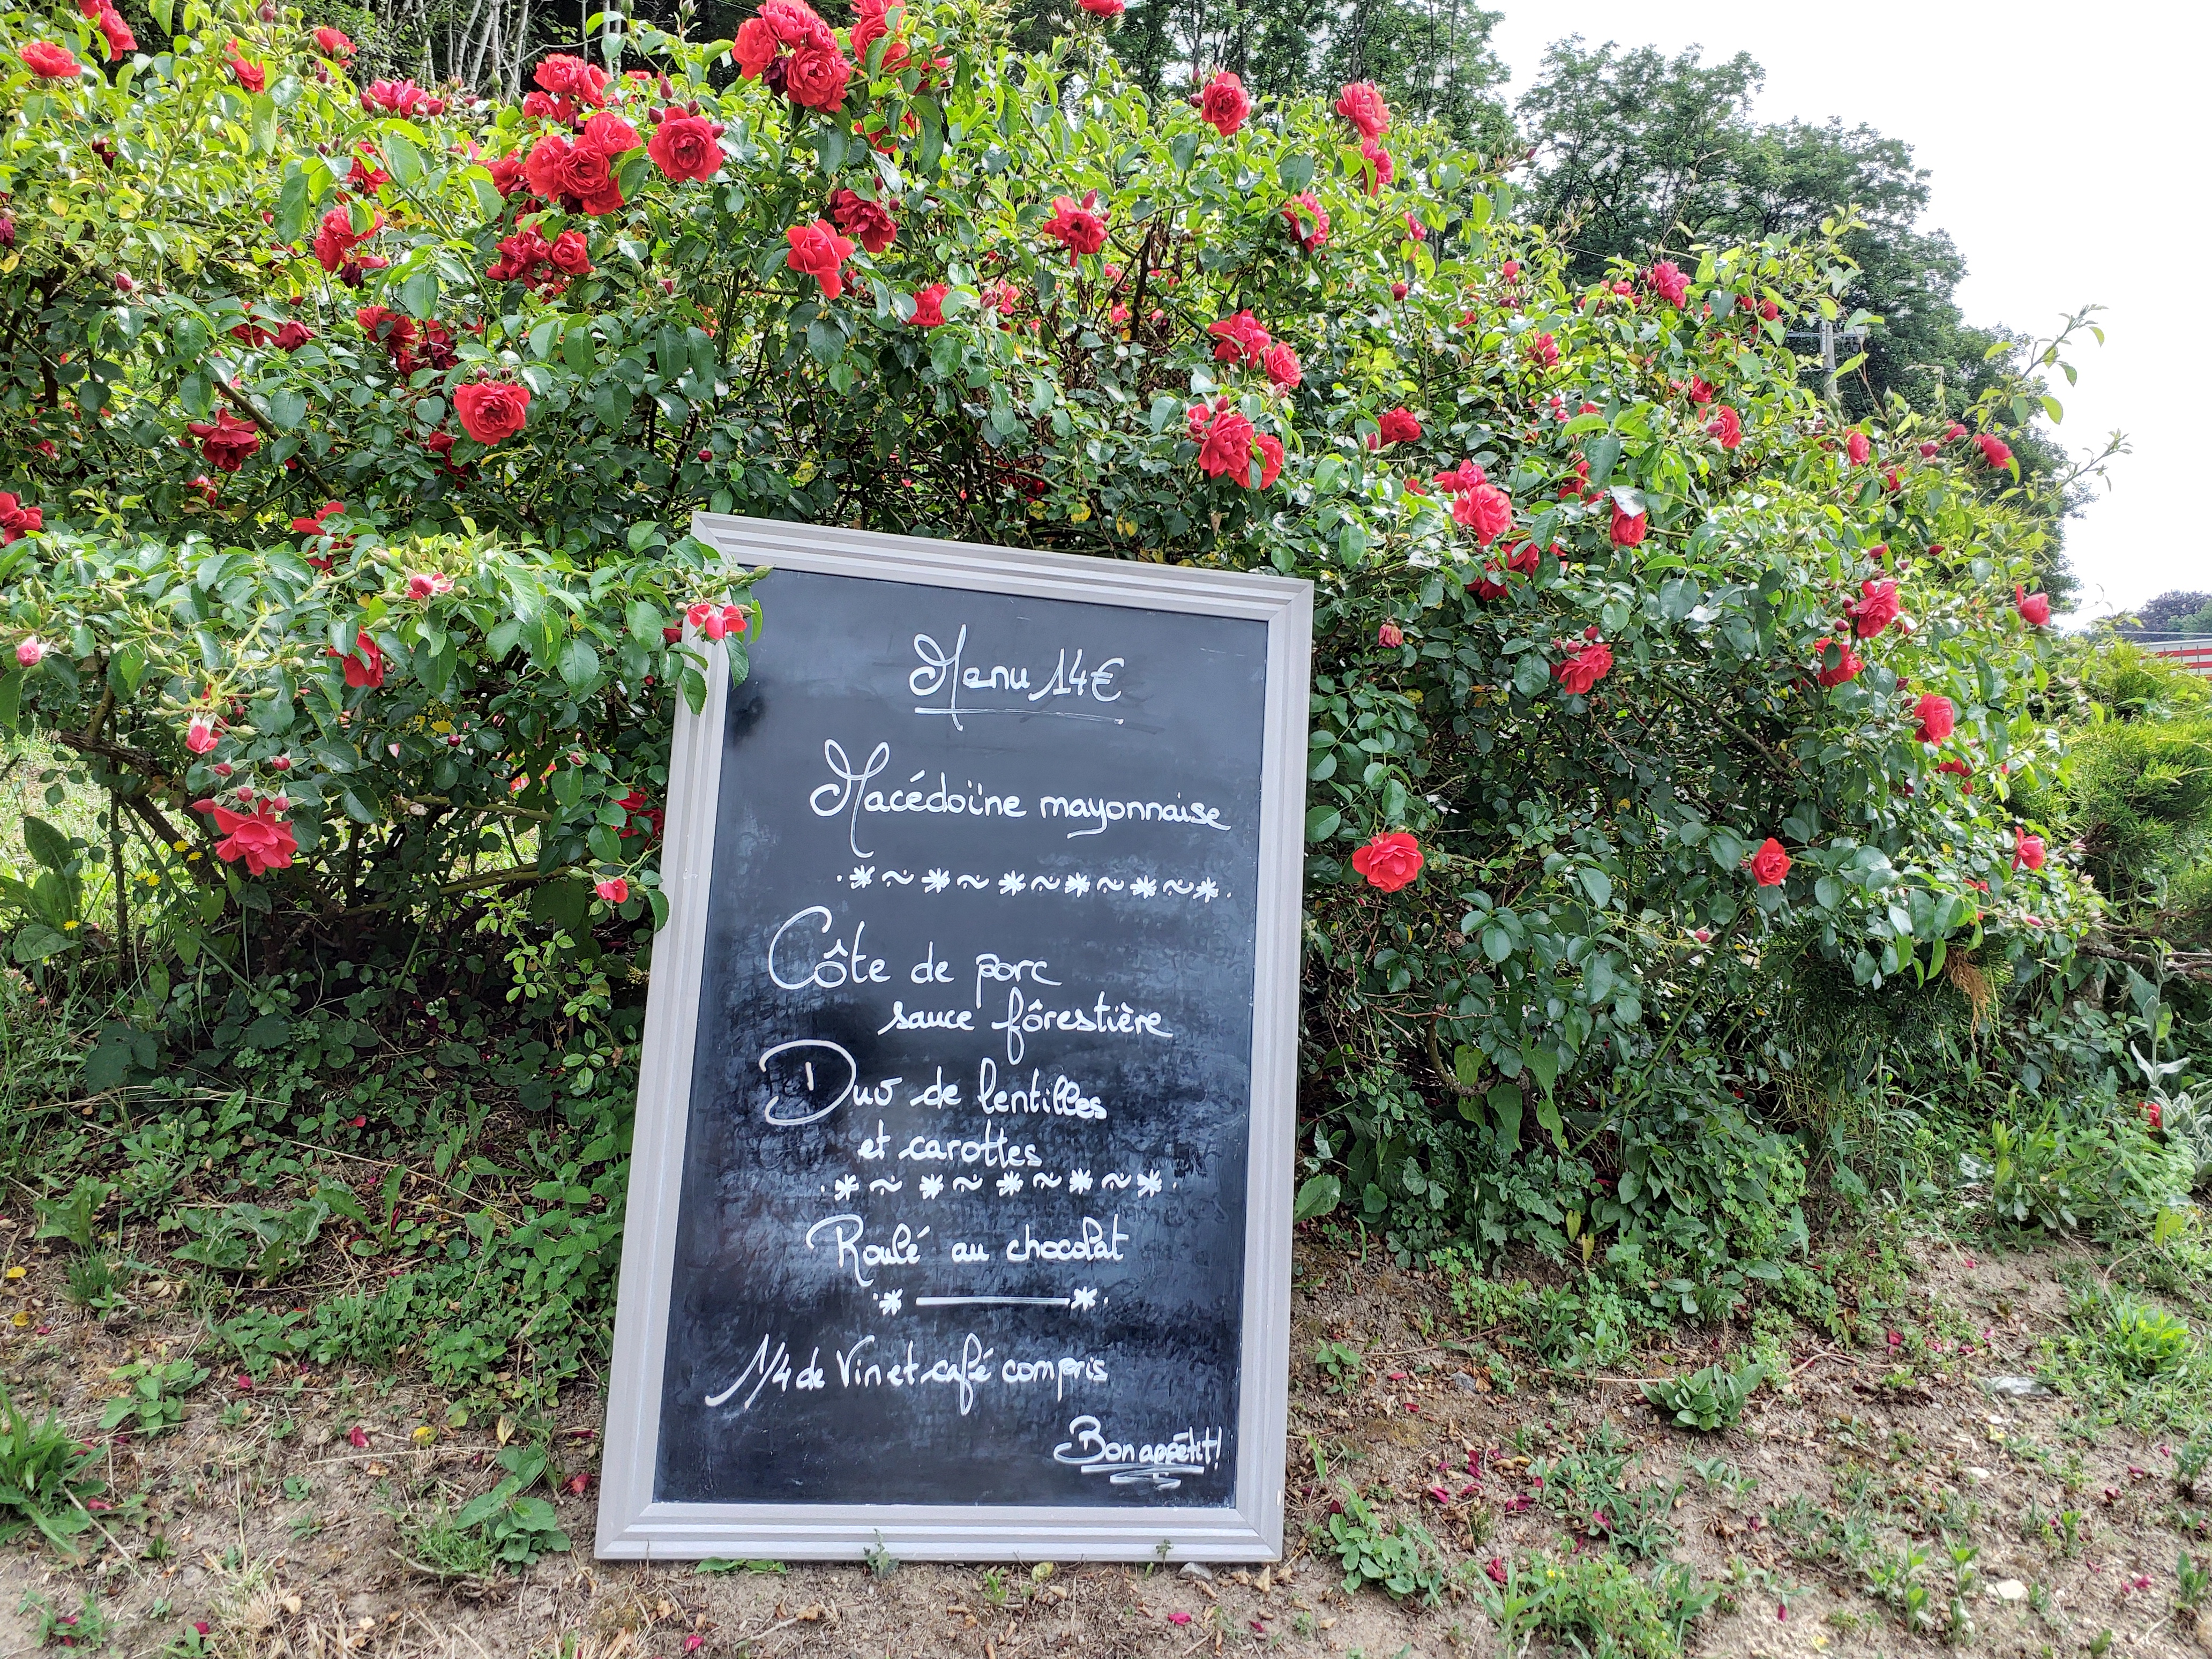 Menu 14€
Macédoïne mayonnaise
Côte de porc
sauce fôrestière
Duo de lentilles
et carottes
Roulé au chocolat
1/4 de Vin et café compris
Bon appétit!